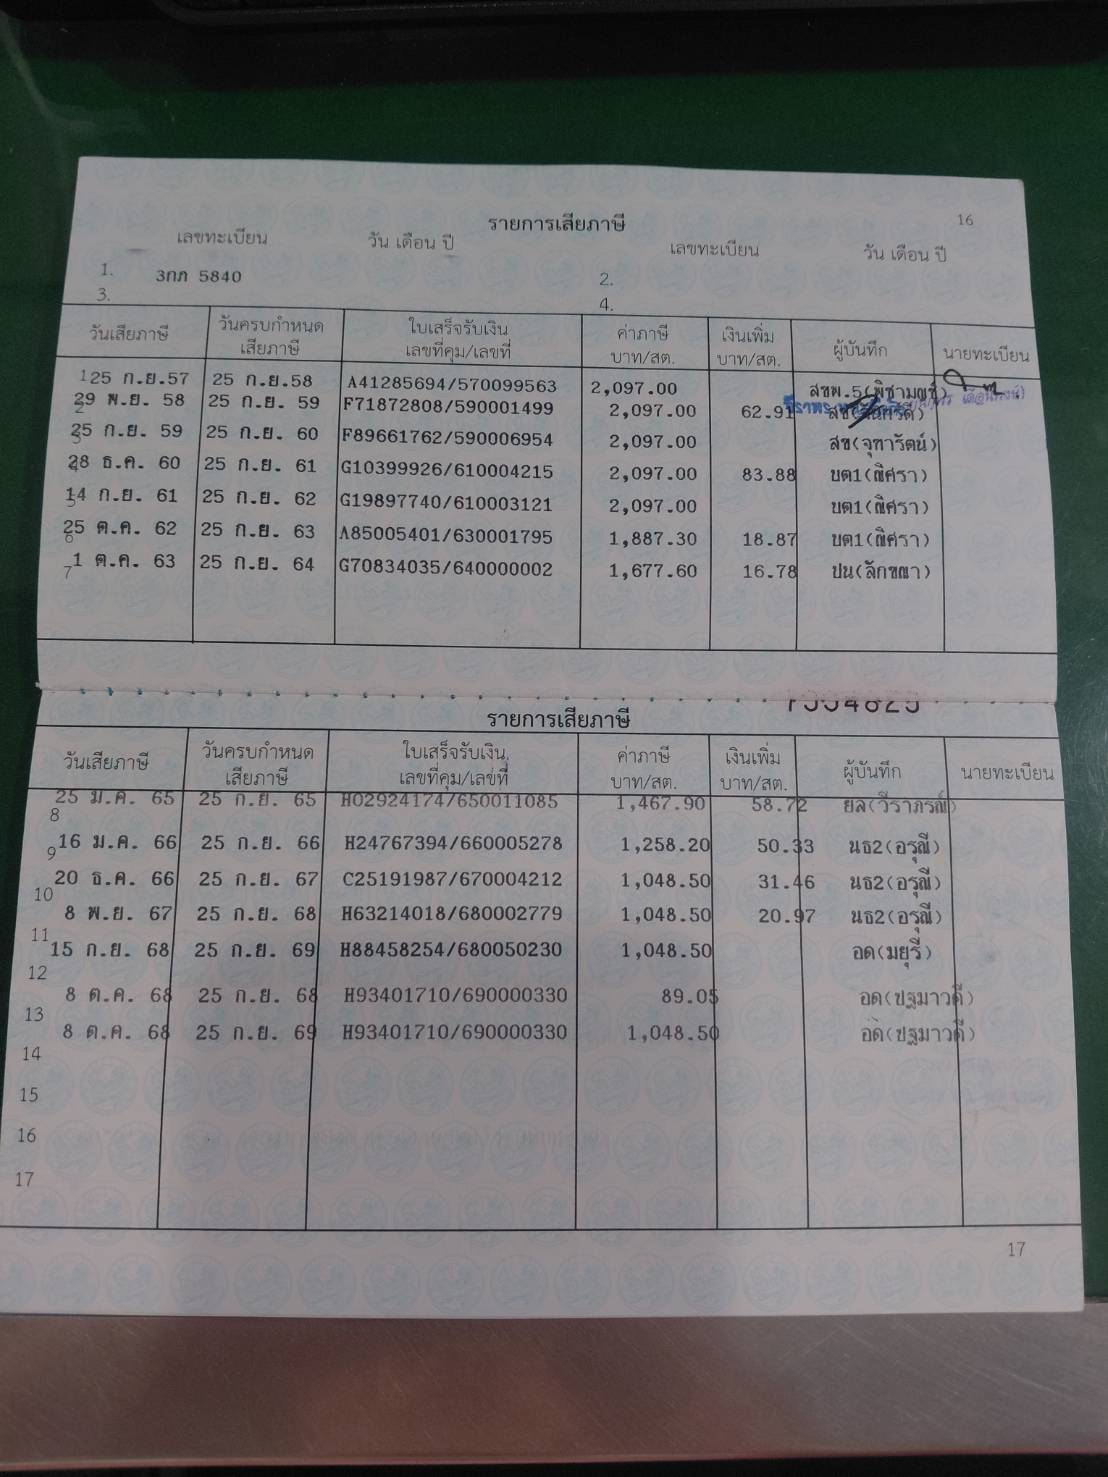 16
รายการเสียภาษี
เลขทะเบียน วัน เดือน ปี เลขทะเบียน วัน เดือน ปี
1. 3กภ 5840 2.
3. 4.
วันเสียภาษี วันครบกำหนดเสียภาษี ใบเสร็จรับเงิน เลขที่คุม/เลขที่ ค่าภาษี บาท/สต. เงินเพิ่ม บาท/สต. ผู้บันทึก นายทะเบียน
1 25 ก.ย.57 25 ก.ย.58 A41285694/570099563 2,097.00 สชพ.5(พิชามญช์)
2 29 พ.ย. 58 25 ก.ย. 59 F71872808/590001499 2,097.00 62.91
3 25 ก.ย. 59 25 ก.ย. 60 F89661762/590006954 2,097.00 สช(จุฑารัตน์)
4 28 ธ.ค. 60 25 ก.ย. 61 G10399926/610004215 2,097.00 83.88 บต1(ณิศรา)
5 14 ก.ย. 61 25 ก.ย. 62 G19897740/610003121 2,097.00 บต1(ณิศรา)
6 25 ต.ค. 62 25 ก.ย. 63 A85005401/630001795 1,887.30 18.87 บต1(ณิศรา)
7 1 ต.ค. 63 25 ก.ย. 64 G70834035/640000002 1,677.60 16.78 ปน(ลักขณา)
รายการเสียภาษี
วันเสียภาษี วันครบกำหนดเสียภาษี ใบเสร็จรับเงิน เลขที่คุม/เลขที่ ค่าภาษี บาท/สต. เงินเพิ่ม บาท/สต. ผู้บันทึก นายทะเบียน
8 25 ม.ค. 65 25 ก.ย. 65 H02924174/650011085 1,467.90 58.72 ยล(วีราภรณ์)
9 16 ม.ค. 66 25 ก.ย. 66 H24767394/660005278 1,258.20 50.33 นธ2(อรุณี)
10 20 ธ.ค. 66 25 ก.ย. 67 C25191987/670004212 1,048.50 31.46 นธ2(อรุณี)
11 8 พ.ย. 67 25 ก.ย. 68 H63214018/680002779 1,048.50 20.97 นธ2(อรุณี)
12 15 ก.ย. 68 25 ก.ย. 69 H88458254/680050230 1,048.50 อด(มยุรี)
13 8 ต.ค. 68 25 ก.ย. 68 H93401710/690000330 89.05 อด(ปฐมาวดี)
14 8 ต.ค. 68 25 ก.ย. 69 H93401710/690000330 1,048.50 อด(ปฐมาวดี)
15
16
17
17